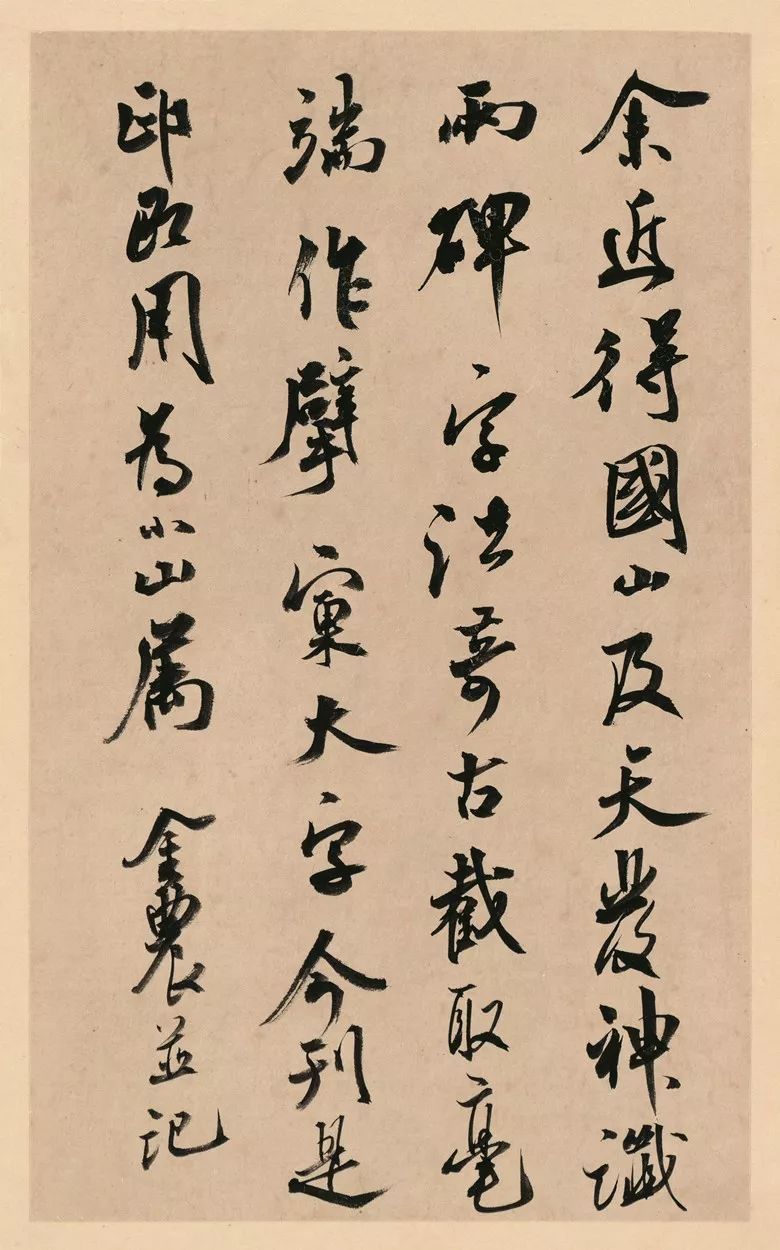 余近得國山及天發神讖
兩碑字法奇古截取毫
端作擘窠大字今刊是
印即用為小山屬 金農並記